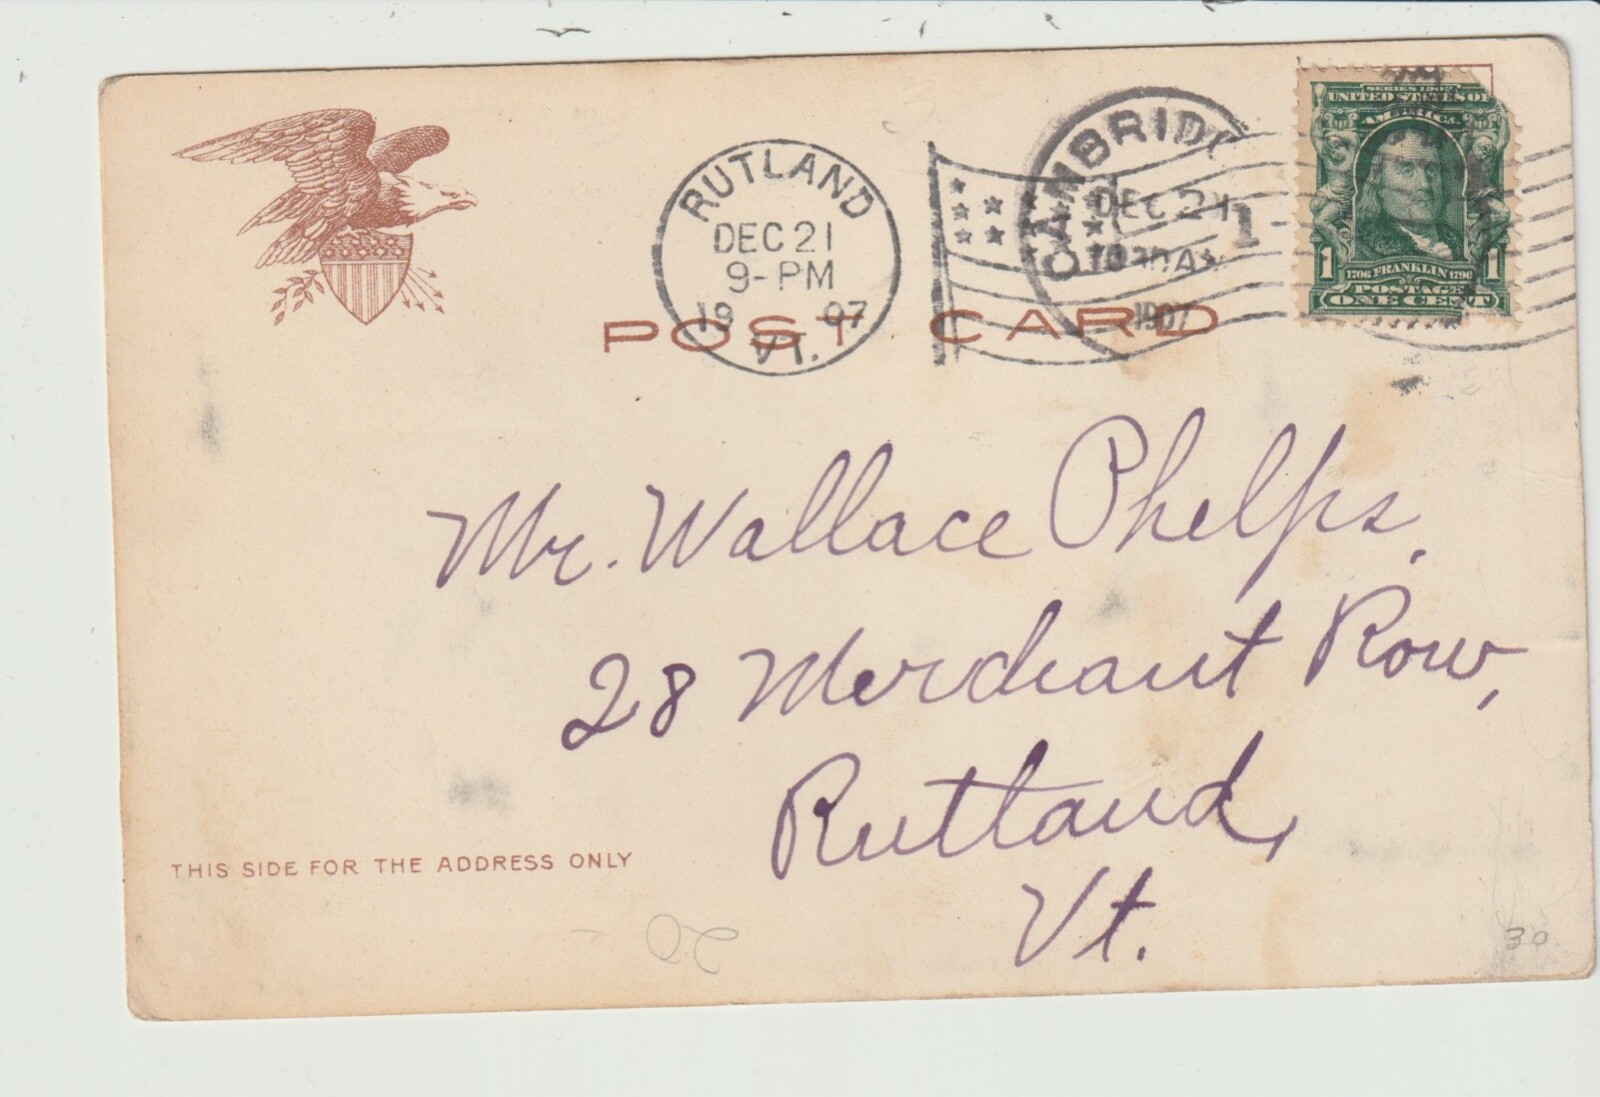 RUTLAND
DEC 21
9-PM
1907
VT.
DEC 21
1
1907
SERIES 1902
UNITED STATES OF
AMERICA
1 1
1706 FRANKLIN 1790
POSTAGE
ONE CENT
POST CARD
Mr. Wallace Phelps,
28 Merchant Row,
Rutland,
Vt.
THIS SIDE FOR THE ADDRESS ONLY
20-
30